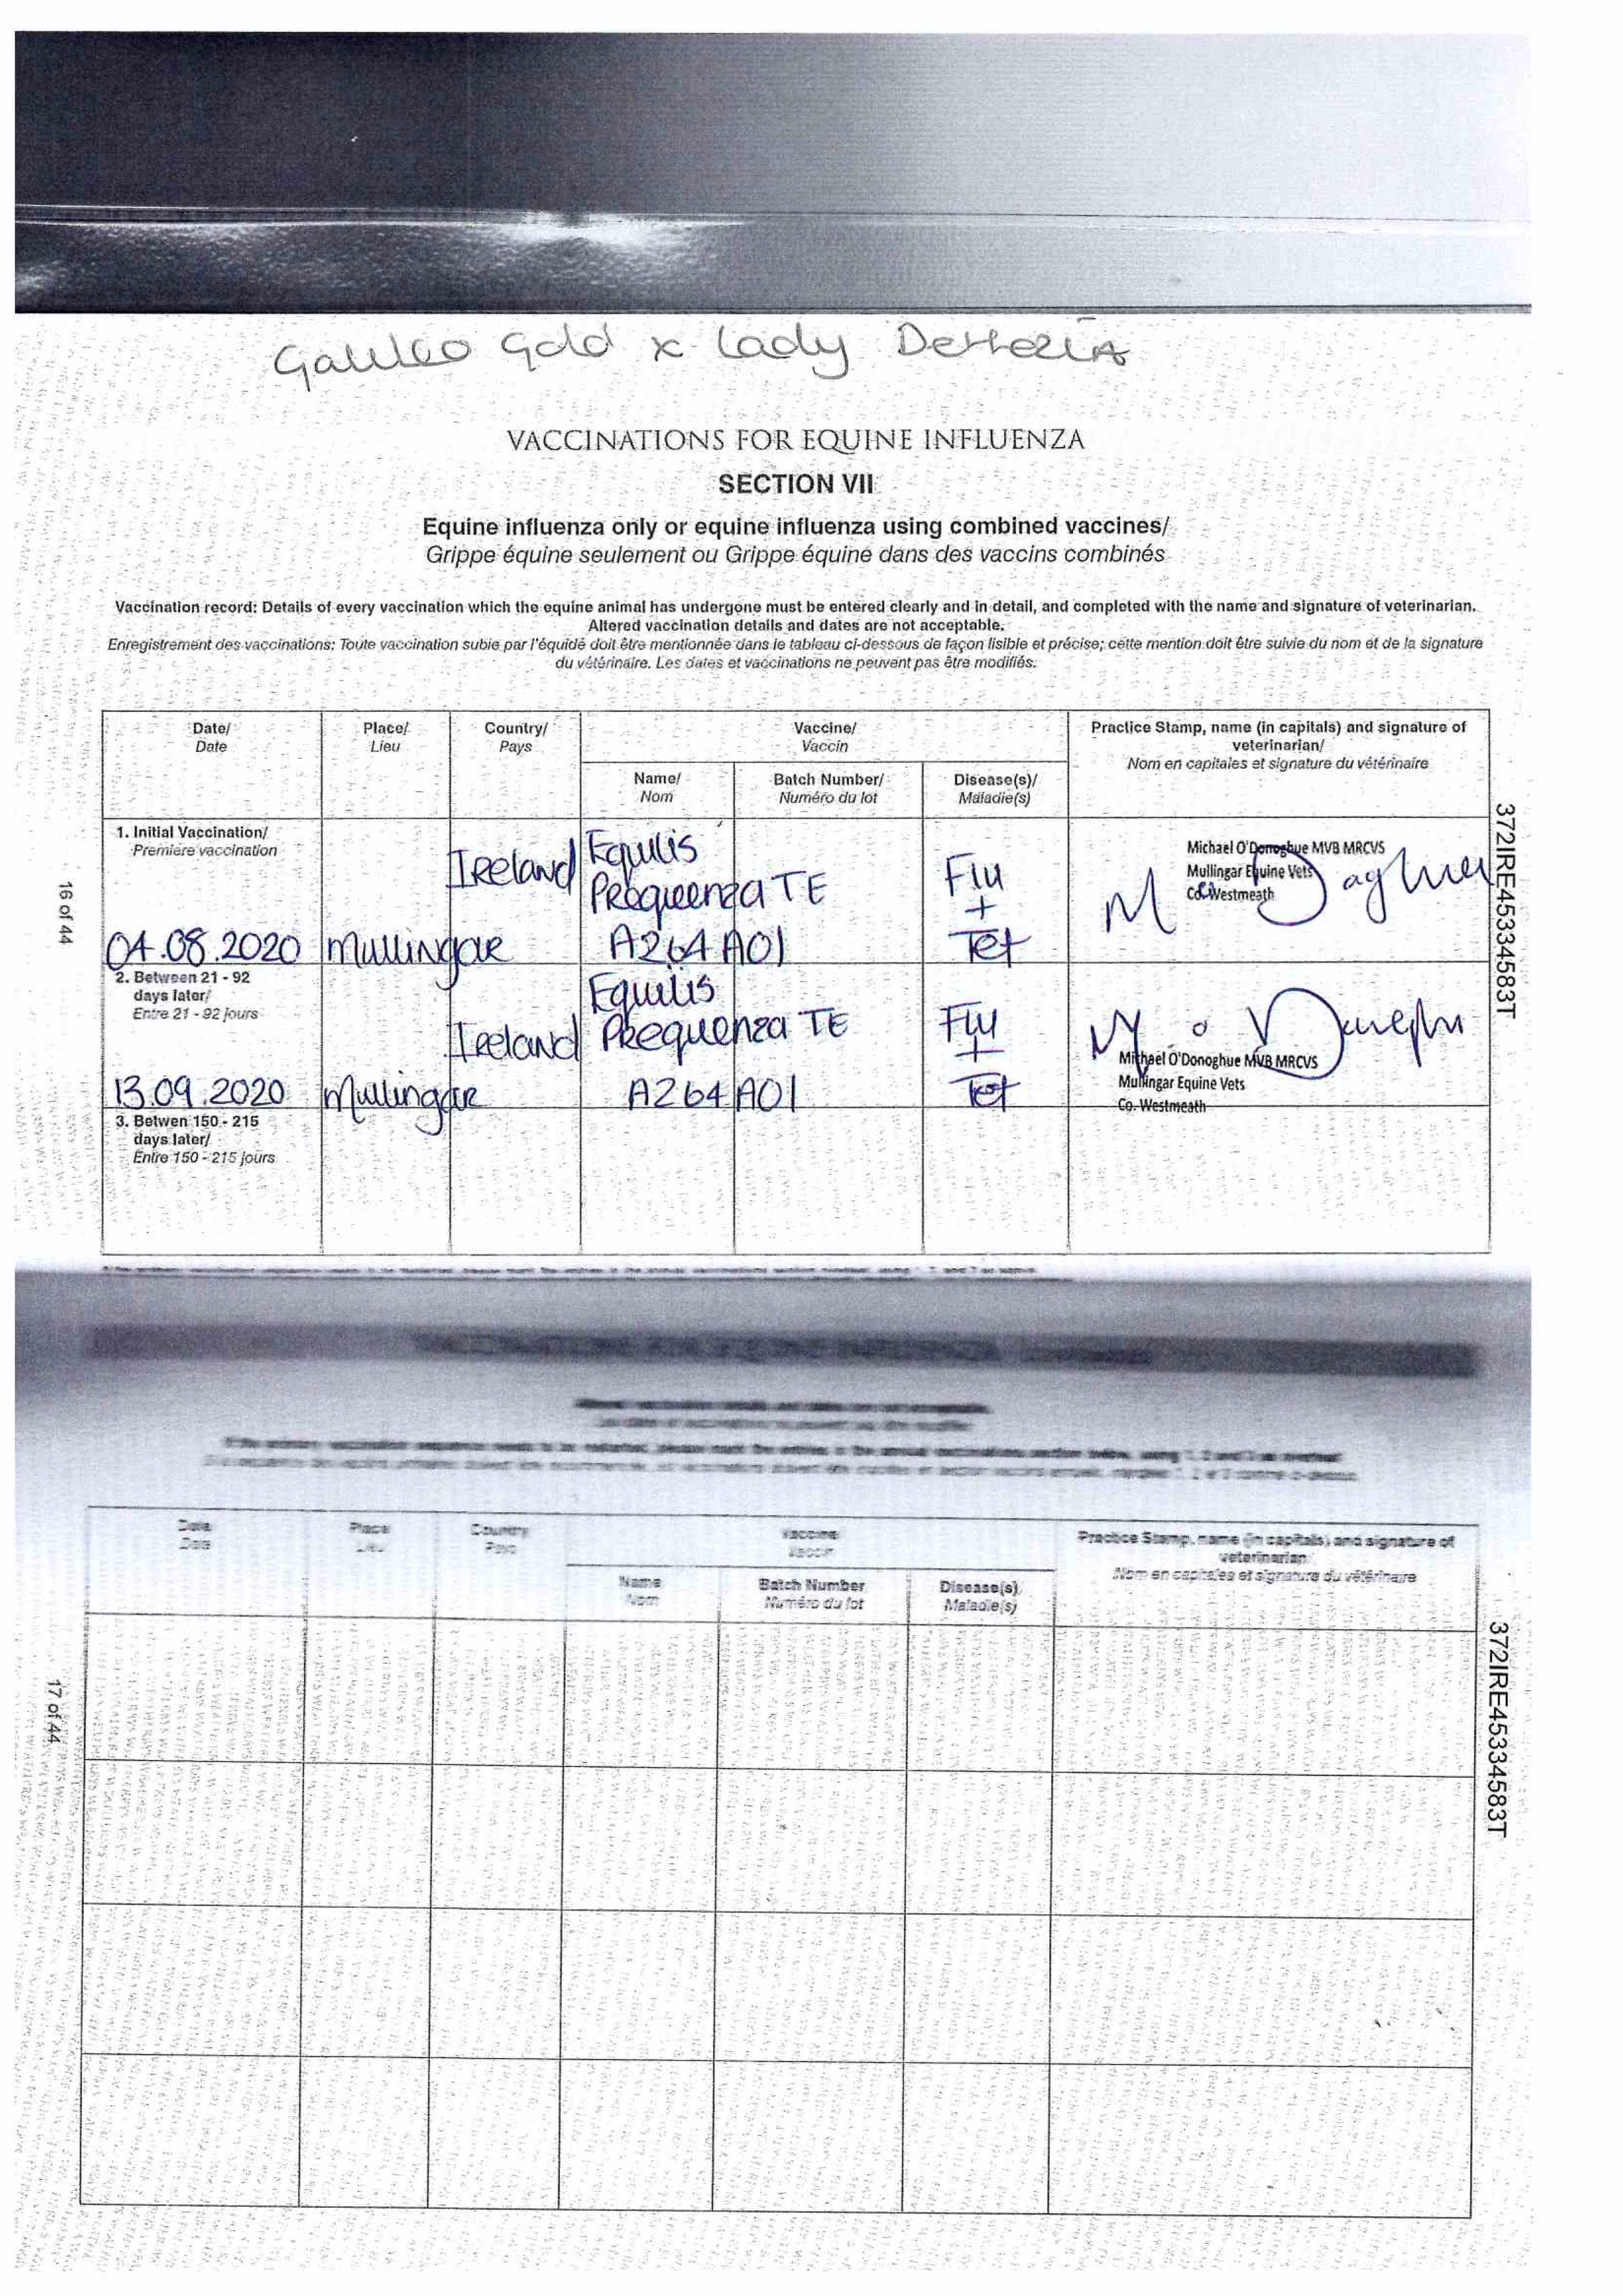 Galileo Gold x Lady Dettoria
VACCINATIONS FOR EQUINE INFLUENZA
SECTION VII
Equine influenza only or equine influenza using combined vaccines/
Grippe équine seulement ou Grippe équine dans des vaccins combinés
Vaccination record: Details of every vaccination which the equine animal has undergone must be entered clearly and in detail, and completed with the name and signature of veterinarian.
Altered vaccination details and dates are not acceptable.
Enregistrement des vaccinations: Toute vaccination subie par l'équidé doit être mentionnée dans le tableau ci-dessous de façon lisible et précise; cette mention doit être suivie du nom et de la signature
du vétérinaire. Les dates et vaccinations ne peuvent pas être modifiés.
Date/
Date
Place/
Lieu
Country/
Pays
Vaccine/
Vaccin
Practice Stamp, name (in capitals) and signature of
veterinarian/
Nom en capitales et signature du vétérinaire
Name/
Nom
Batch Number/
Numéro du lot
Disease(s)/
Maladie(s)
1. Initial Vaccination/
Première vaccination
04.08.2020
Mullingar
Ireland
Equilis
Prequenza TE
A264A01
Flu
+
Tet
Michael O'Donoghue MVB MRCVS
Mullingar Equine Vets
Co. Westmeath
2. Between 21 - 92
days later/
Entre 21 - 92 jours
13.09.2020
Mullingar
Ireland
Equilis
Prequenza TE
A264A01
Flu
+
Tet
Michael O'Donoghue MVB MRCVS
Mullingar Equine Vets
Co. Westmeath
3. Betwen 150 - 215
days later/
Entre 150 - 215 jours
16 of 44
372IRE45334583T
Date
Date
Place
Lieu
Country
Pays
Vaccine
Vaccin
Practice Stamp, name (in capitals) and signature of
veterinarian
Nom en capitales et signature du vétérinaire
Name
Nom
Batch Number
Numéro du lot
Disease(s)
Maladie(s)
17 of 44
372IRE45334583T